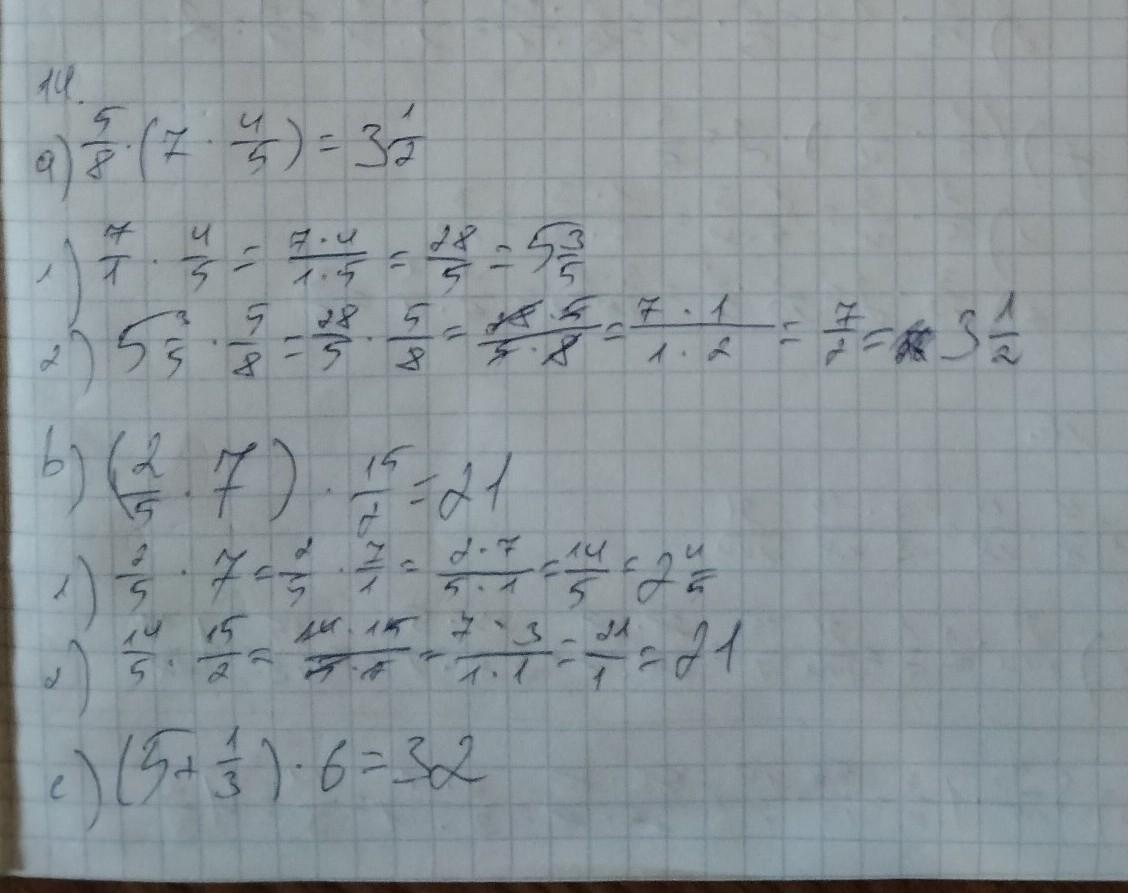 14.
a) 5/8 · (7 · 4/5) = 3 1/2
1) 7/1 · 4/5 = 7·4/1·5 = 28/5 = 5 3/5
2) 5 3/5 · 5/8 = 28/5 · 5/8 = 28·5/5·8 = 7·1/1·2 = 7/2 = 3 1/2
b) (2/5 · 7) · 15/2 = 21
1) 2/5 · 7 = 2/5 · 7/1 = 2·7/5·1 = 14/5 = 2 4/5
2) 14/5 · 15/2 = 14·15/5·2 = 7·3/1·1 = 21/1 = 21
c) (5 + 1/3) · 6 = 32